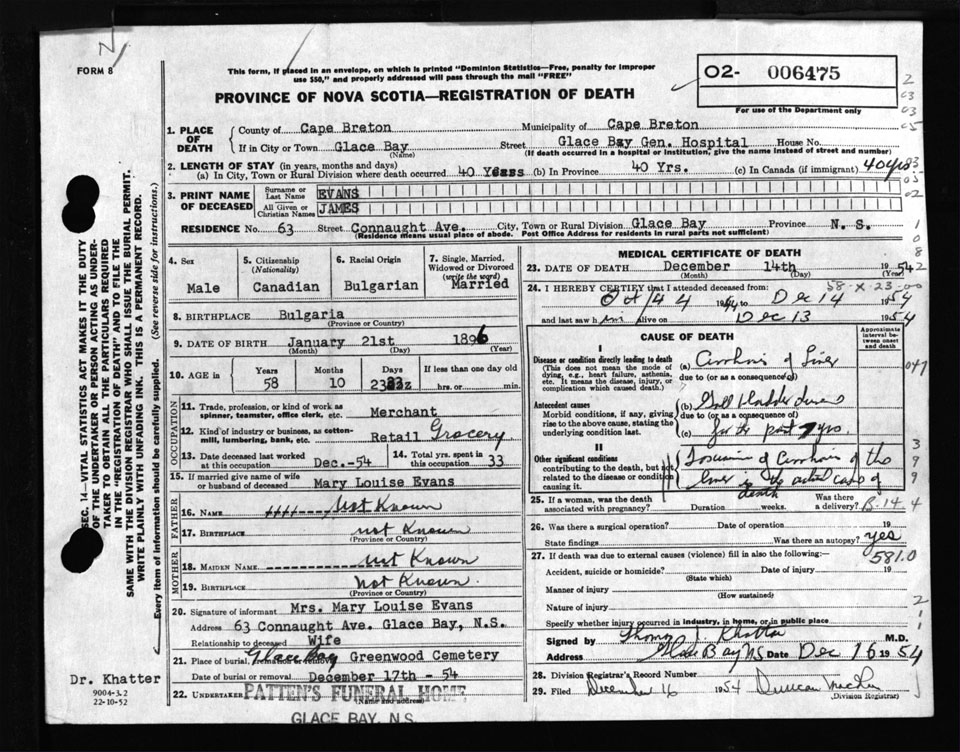 FORM 8
This form, if placed in an envelope, on which is printed "Dominion Statistics—Free, penalty for improper
use $50," and properly addressed will pass through the mail "FREE"
O2- 006475
For use of the Department only
PROVINCE OF NOVA SCOTIA—REGISTRATION OF DEATH
1. PLACE OF DEATH
County of Cape Breton Municipality of Cape Breton
If in City or Town Glace Bay Street Glace Bay Gen. Hospital House No.
(Name) (If death occurred in a hospital or institution, give the name instead of street and number)
2. LENGTH OF STAY (in years, months and days)
(a) In City, Town or Rural Division where death occurred 40 Years (b) In Province 40 Yrs. (c) In Canada (if immigrant) 40 yrs
3. PRINT NAME OF DECEASED
Surname or Last Name EVANS
All Given or Christian Names JAMES
RESIDENCE No. 63 Street Connaught Ave. City, Town or Rural Division Glace Bay Province N. S.
(Residence means usual place of abode. Post Office Address for residents in rural parts not sufficient)
4. Sex
Male
5. Citizenship
(Nationality)
Canadian
6. Racial Origin
Bulgarian
7. Single, Married,
Widowed or Divorced
(write the word)
Married
8. BIRTHPLACE Bulgaria
(Province or Country)
9. DATE OF BIRTH January 21st 1896
(Month) (Day) (Year)
10. AGE in Years Months Days If less than one day old
58 10 23 hrs. or min.
OCCUPATION
11. Trade, profession, or kind of work as
spinner, teamster, office clerk, etc. Merchant
12. Kind of industry or business, as cotton-
mill, lumbering, bank, etc. Retail Grocery
13. Date deceased last worked
at this occupation Dec.-54
14. Total yrs. spent in
this occupation 33
15. If married give name of wife
or husband of deceased Mary Louise Evans
FATHER
16. NAME Not Known
17. BIRTHPLACE Not Known
(Province or Country)
MOTHER
18. MAIDEN NAME Not Known
19. BIRTHPLACE Not Known.
(Province or Country)
20. Signature of informant Mrs. Mary Louise Evans
Address 63 Connaught Ave. Glace Bay, N.S.
Relationship to deceased Wife
21. Place of burial, cremation or removal Glace Bay Greenwood Cemetery
Date of burial or removal December 17th - 54
22. UNDERTAKER PATTEN'S FUNERAL HOME
(Name and address)
GLACE BAY, N.S.
MEDICAL CERTIFICATE OF DEATH
23. DATE OF DEATH December 14th 1954
(Month) (Day)
58-X-23-00
24. I HEREBY CERTIFY that I attended deceased from:
Oct 44 to Dec 14 1954
and last saw him alive on Dec 13 1954
CAUSE OF DEATH
Approximate
interval be-
tween onset
and death
I
Disease or condition directly leading to death
(This does not mean the mode of
dying, e.g., heart failure, asthenia,
etc. It means the disease, injury, or
complication which caused death.)
(a) Cirrhosis of Liver
due to (or as a consequence of)
Antecedent causes
Morbid conditions, if any, giving
rise to the above cause, stating the
underlying condition last.
(b) Gall bladder
due to (or as a consequence of)
(c) for the past 7 yrs.
II
Other significant conditions
contributing to the death, but not
related to the disease or condition
causing it.
of Cirrhosis of the
liver is the actual cause of
death
25. If a woman, was the death
associated with pregnancy? Duration weeks. Was there
a delivery? B.14.4
26. Was there a surgical operation? Date of operation 19
State findings Was there an autopsy? yes
581.0
27. If death was due to external causes (violence) fill in also the following:—
Accident, suicide or homicide? Date of injury 19
(State which)
Manner of injury
(How sustained)
Nature of injury
Specify whether injury occurred in industry, in home, or in public place
Signed by Thomas J. Khattar M.D.
Address Glace Bay NS Date Dec 16 1954
28. Division Registrar's Record Number
29. Filed December 16 1954 Duncan
(Division Registrar)
SEC. 14—VITAL STATISTICS ACT MAKES IT THE DUTY
OF THE UNDERTAKER OR PERSON ACTING AS UNDER-
TAKER TO OBTAIN ALL THE PARTICULARS REQUIRED
IN THE "REGISTRATION OF DEATH" AND TO FILE THE
SAME WITH THE DIVISION REGISTRAR WHO SHALL ISSUE THE BURIAL PERMIT.
WRITE PLAINLY WITH UNFADING INK. THIS IS A PERMANENT RECORD.
Every item of information should be carefully supplied. (See reverse side for instructions.)
Dr. Khatter
9004-3.2
22-10-52